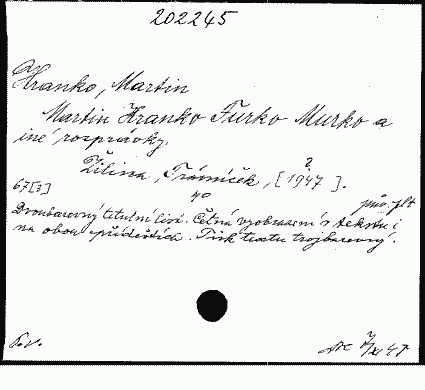 202245
Hranko, Martin
Martin Hranko Ťurko Murko a
iné rozprávky.
Žilina, Trávníček, [1947?].
67[3] pův. plt
Dvoubarevný titulní list. Četná vyobrazení v tekstu i
na obou přídeštích. Tisk textu trojbarevný.